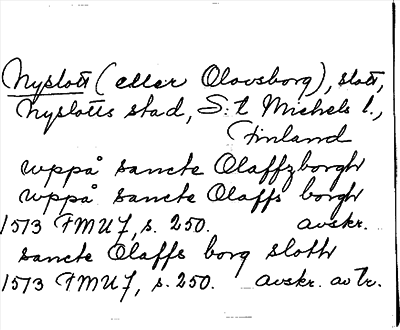 Nyslott (eller Olovsborg), slott,
Nyslotts stad, S:t Michels l.,
Finland
wppå sancte Olaffzborgh
wppå sancte Olaffs borgh
1513 FMU 7, s. 250. avskr.
sancte Olaffs borg sloth
1513 FMU 7, s. 250. avskr. av Tr.